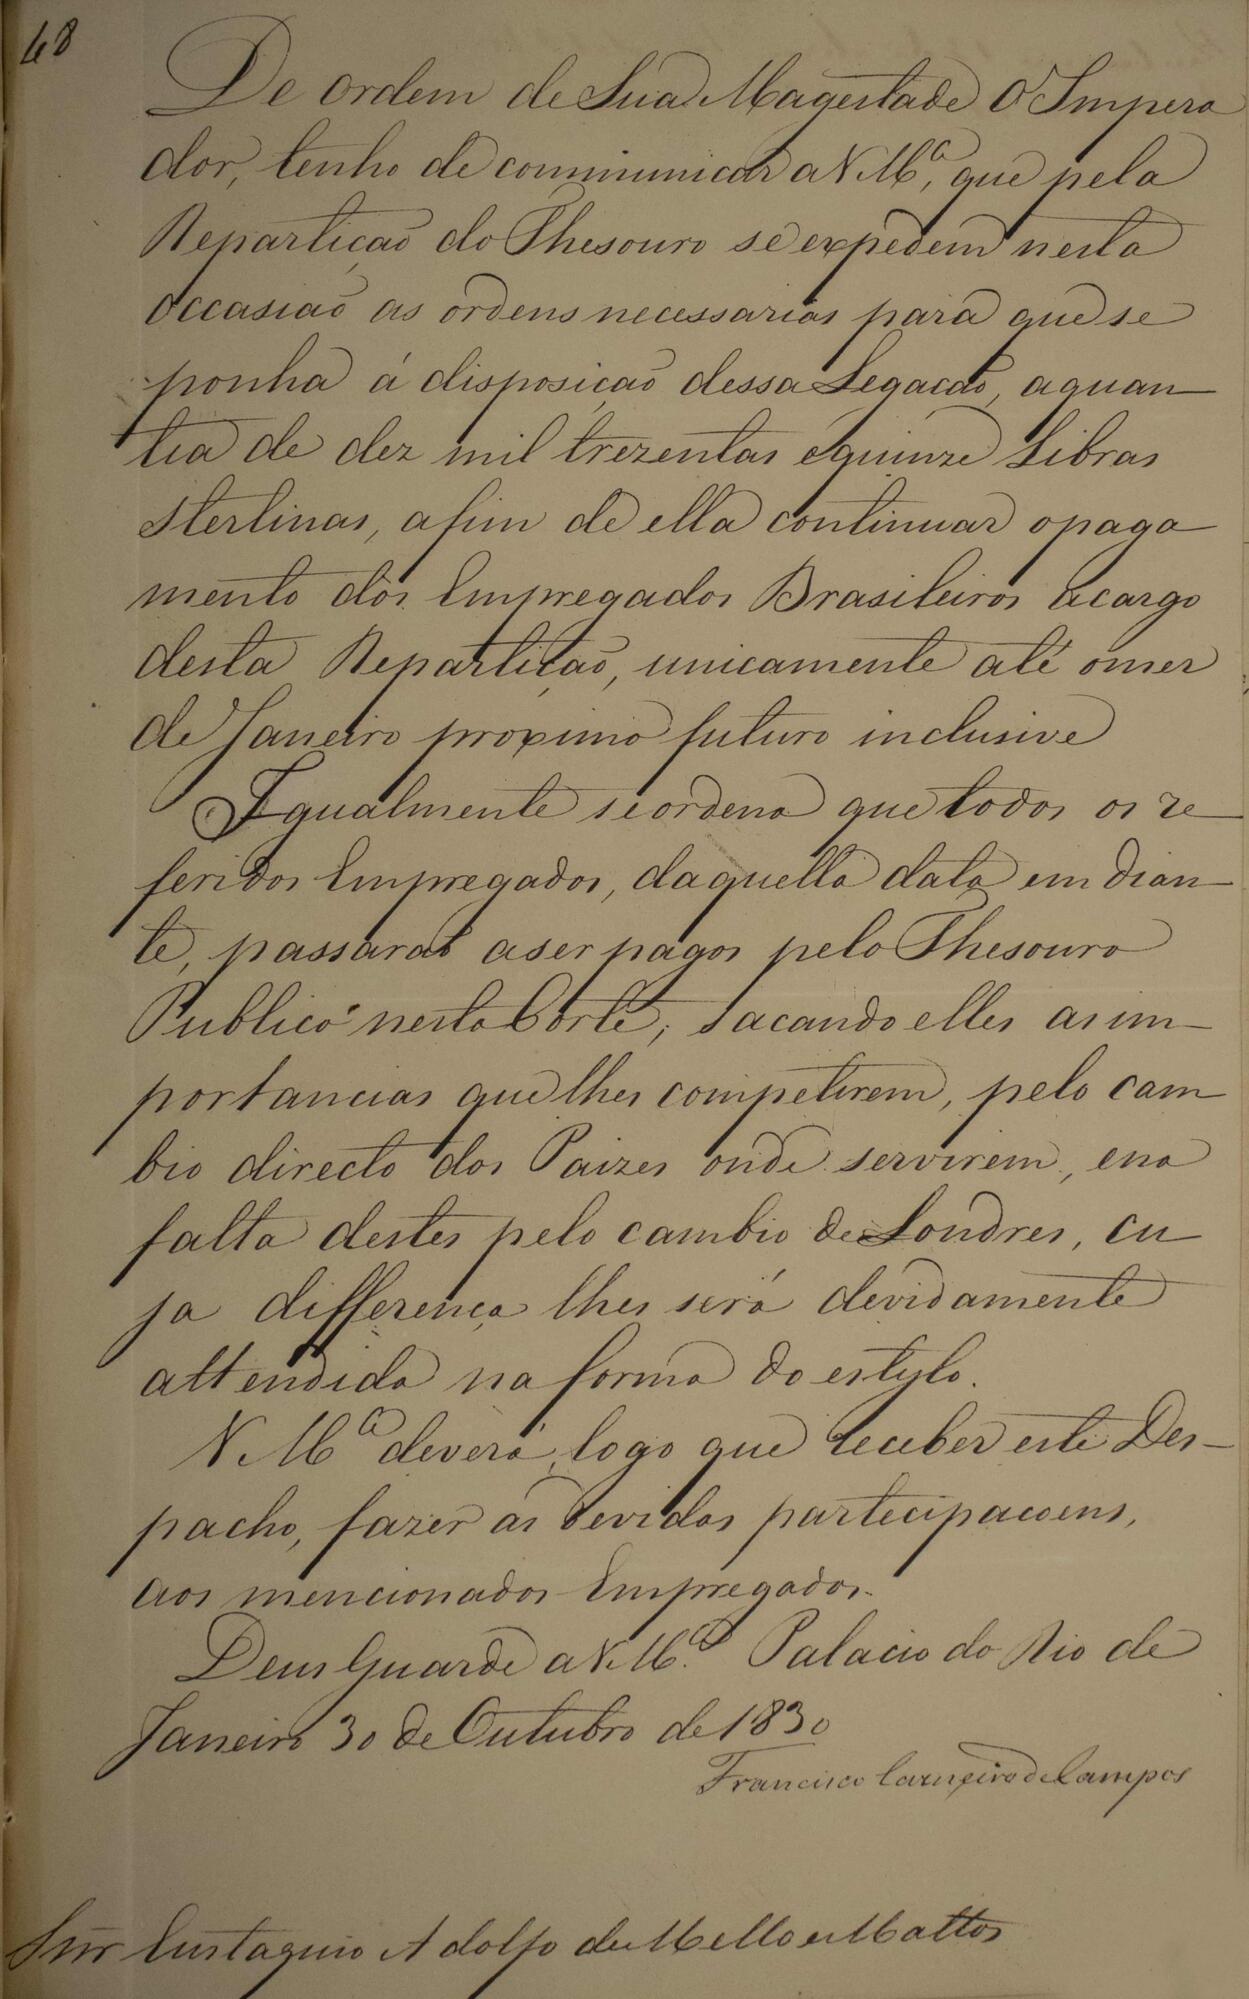 48
De Ordem de Sua Magestade O Impera
dor, tenho de communicar a V Mce, que pela
Repartição do Thesouro se expedem nesta
occasião as ordens necessarias para que se
ponha á disposição dessa Legação, a quan-
tia de dez mil trezentas e quinze Libras
Sterlinas, afim de ella continuar o paga-
mento dos Empregados Brasileiros a cargo
desta Repartição, unicamente até o mez
de Janeiro proximo futuro inclusive
Igualmente se ordena que todos os re-
feridos Empregados, daquella data em dian-
te, passarão a ser pagos pelo Thesouro
Publico nesta Corte; sacando elles as im-
portancias que lhes competirem, pelo cam-
bio directo dos Paizes onde servirem, e na
falta destes pelo cambio de Londres, cu-
ja differença lhes será devidamente
attendida na forma do estylo.
V Mce deverá, logo que receber este Des-
pacho, fazer as devidas partecipacoens,
aos mencionados Empregados.
Deus Guarde a V Mce. Palacio do Rio de
Janeiro 30 de Outubro de 1830
Francisco Carneiro de Campos
Snr Eustaquio Adolfo de Mello e Mattos